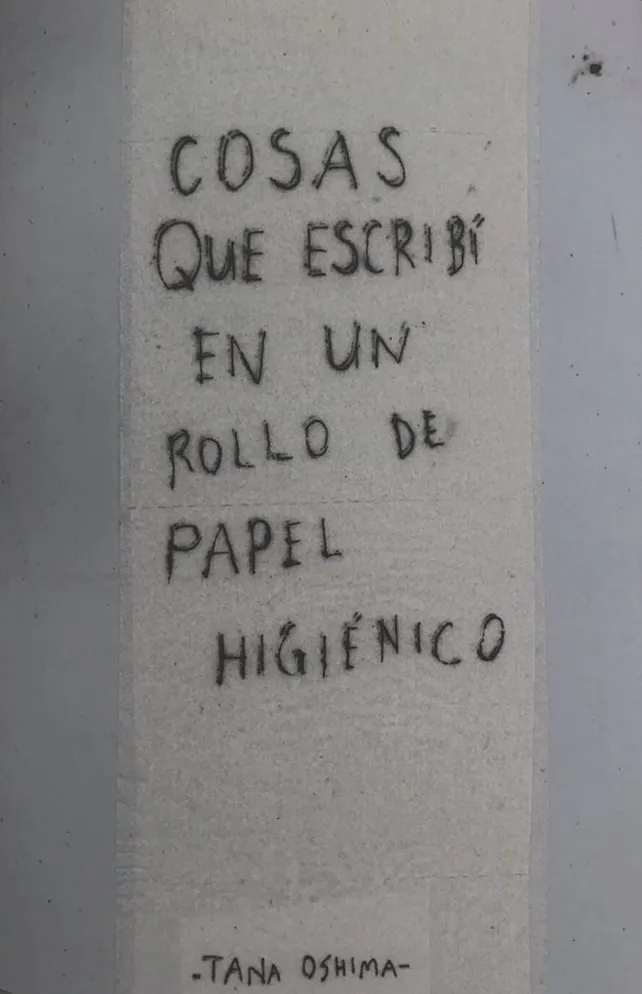 COSAS
QUE ESCRIBÍ
EN UN
ROLLO DE
PAPEL
HIGIÉNICO
-TANA OSHIMA-